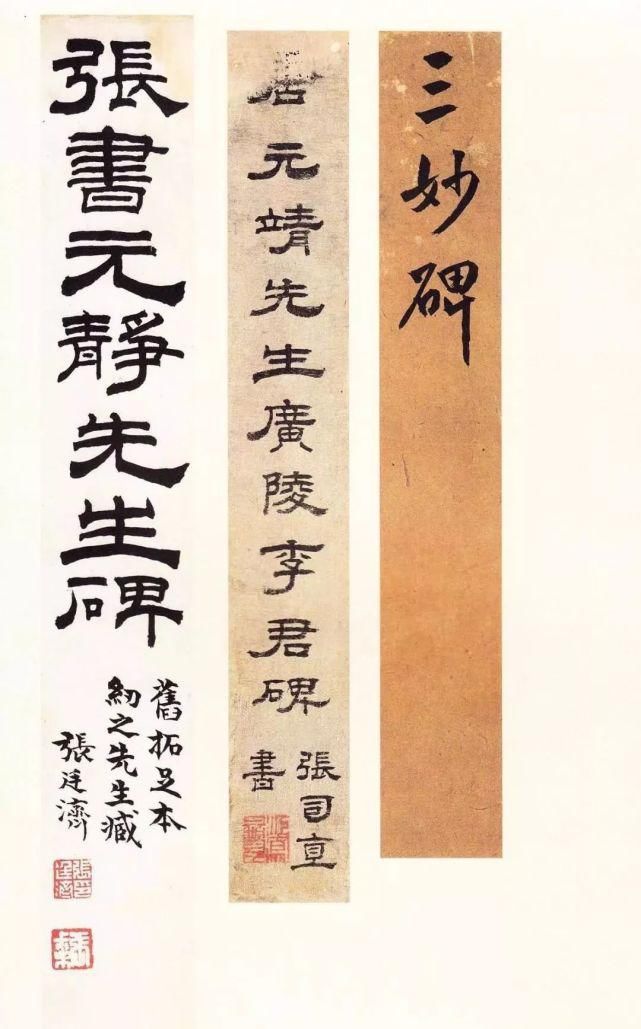 三妙碑
元靖先生廣陵李君碑
張司直
書
張書元靜先生碑
舊拓足本
紉之先生臧
張廷濟